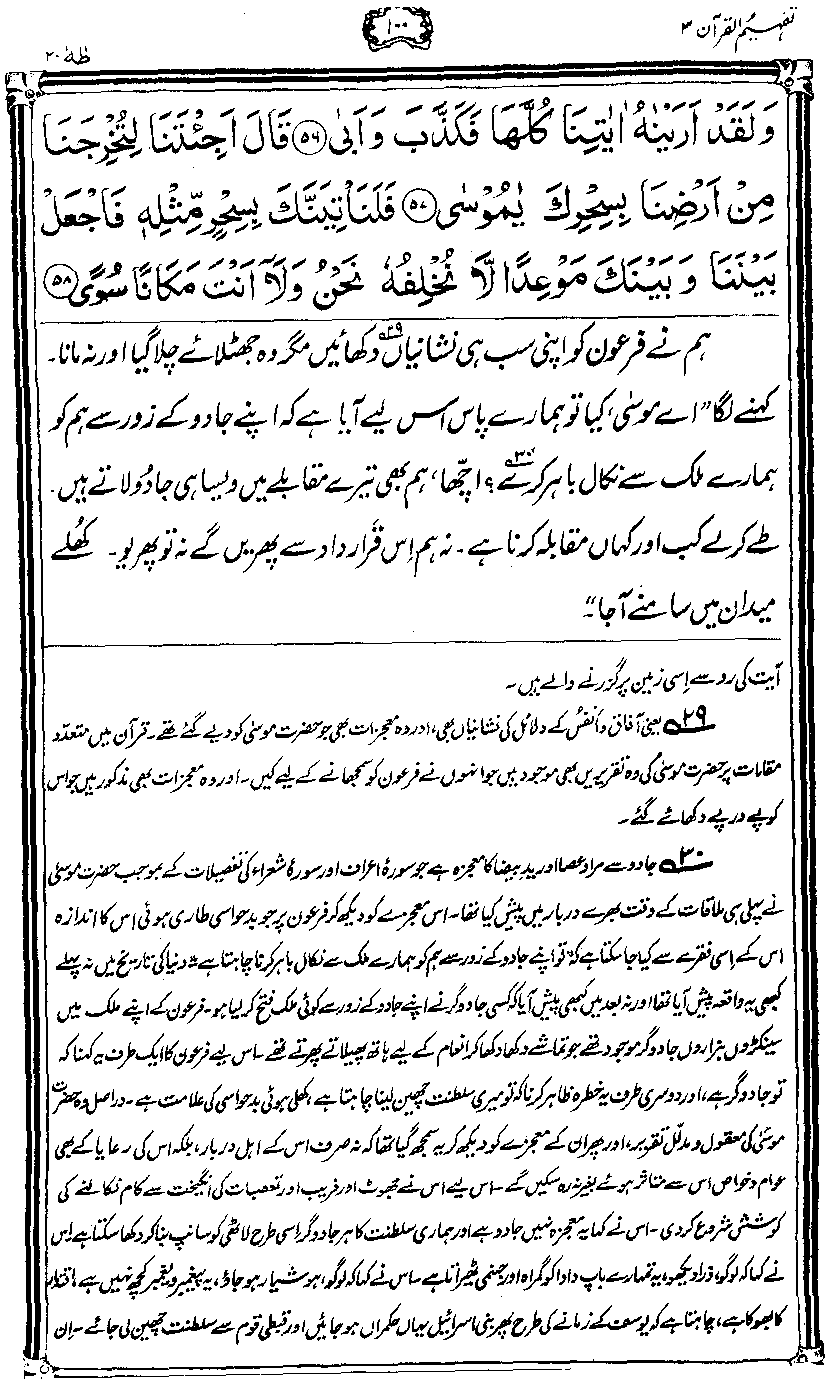 تفہیم القرآن ۳
۱۰۰
طٰهٰ ۲۰
وَلَقَدْ اَرَيْنٰهُ اٰيٰتِنَا كُلَّهَا فَكَذَّبَ وَاَبٰى ﴿۵۶﴾ قَالَ اَجِئْتَنَا لِتُخْرِجَنَا
مِنْ اَرْضِنَا بِسِحْرِكَ يٰمُوْسٰى ﴿۵۷﴾ فَلَنَاْتِيَنَّكَ بِسِحْرٍ مِّثْلِهٖ فَاجْعَلْ
بَيْنَنَا وَبَيْنَكَ مَوْعِدًا لَّا نُخْلِفُهٗ نَحْنُ وَلَآ اَنْتَ مَكَانًا سُوًى ﴿۵۸﴾
ہم نے فرعون کو اپنی سب ہی نشانیاں۲۹ دکھائیں مگر وہ جھٹلائے چلا گیا اور نہ مانا۔
کہنے لگا ”اے موسیٰ، کیا تو ہمارے پاس اس لیے آیا ہے کہ اپنے جادو کے زور سے ہم کو
ہمارے ملک سے نکال باہر کرے۳۰؟ اچھا، ہم بھی تیرے مقابلے میں ویسا ہی جادُو لاتے ہیں۔
طے کر لے کب اور کہاں مقابلہ کرنا ہے۔ نہ ہم اِس قرارداد سے پھریں گے نہ تو پھریو۔ کھُلے
میدان میں سامنے آجا“۔
آیت کی رو سے اِسی زمین پر گزرنے والے ہیں۔
۲۹ یعنی آفاق و اَنفُس کے دلائل کی نشانیاں بھی، اور وہ معجزات بھی جو حضرت موسیٰ کو دیے گئے تھے۔ قرآن میں متعدد
مقامات پر حضرت موسیٰ کی وہ تقریریں بھی موجود ہیں جو انہوں نے فرعون کو سمجھانے کے لیے کیں۔ اور وہ معجزات بھی مذکور ہیں جو اس
کو پے در پے دکھائے گئے۔
۳۰ جادو سے مراد عصا اور یدِ بیضا کا معجزہ ہے جو سورۂ اعراف اور سورۂ شعراء کی تفصیلات کے بموجب حضرت موسیٰ
نے پہلی ہی ملاقات کے وقت بھرے دربار میں پیش کیا تھا۔ اس معجزے کو دیکھ کر فرعون پر جو بدحواسی طاری ہوئی اس کا اندازہ
اس کے اِسی فقرے سے کیا جا سکتا ہے کہ ”تو اپنے جادو کے زور سے ہم کو ہمارے ملک سے نکال باہر کرنا چاہتا ہے“۔ دنیا کی تاریخ میں نہ پہلے
کبھی یہ واقعہ پیش آیا تھا اور نہ بعد میں کبھی پیش آیا کہ کسی جادوگر نے اپنے جادو کے زور سے کوئی ملک فتح کر لیا ہو۔ فرعون کے اپنے ملک میں
سینکڑوں ہزاروں جادوگر موجود تھے جو تماشے دکھا دکھا کر انعام کے لیے ہاتھ پھیلاتے پھرتے تھے۔ اس لیے فرعون کا ایک طرف یہ کہنا کہ
تو جادوگر ہے، اور دوسری طرف یہ خطرہ ظاہر کرنا کہ تو میری سلطنت چھین لینا چاہتا ہے، کھلی ہوئی بدحواسی کی علامت ہے۔ دراصل وہ حضرت
موسیٰ کی معقول و مدلّل تقریر، اور پھر ان کے معجزے کو دیکھ کر یہ سمجھ گیا تھا کہ نہ صرف اس کے اہل دربار، بلکہ اس کی رعایا کے بھی
عوام و خواص اس سے متاثر ہوئے بغیر نہ رہ سکیں گے۔ اس لیے اس نے جھوٹ اور فریب اور تعصبات کی انگیخت سے کام نکالنے کی
کوشش شروع کر دی۔ اس نے کہا یہ معجزہ نہیں جادو ہے اور ہماری سلطنت کا ہر جادوگر اِسی طرح لاٹھی کو سانپ بنا کر دکھا سکتا ہے۔ اِس
نے کہا کہ لوگو، ذرا دیکھو، یہ تمہارے باپ دادا کو گمراہ اور جہنمی ٹھیراتا ہے۔ اس نے کہا کہ لوگو، ہوشیار ہو جاؤ، یہ پیغمبر ویغمبر کچھ نہیں ہے، اقتدار
کا بھوکا ہے، چاہتا ہے کہ یوسف کے زمانے کی طرح پھر بنی اسرائیل یہاں حکمراں ہو جائیں اور قبطی قوم سے سلطنت چھین لی جائے۔ اِن